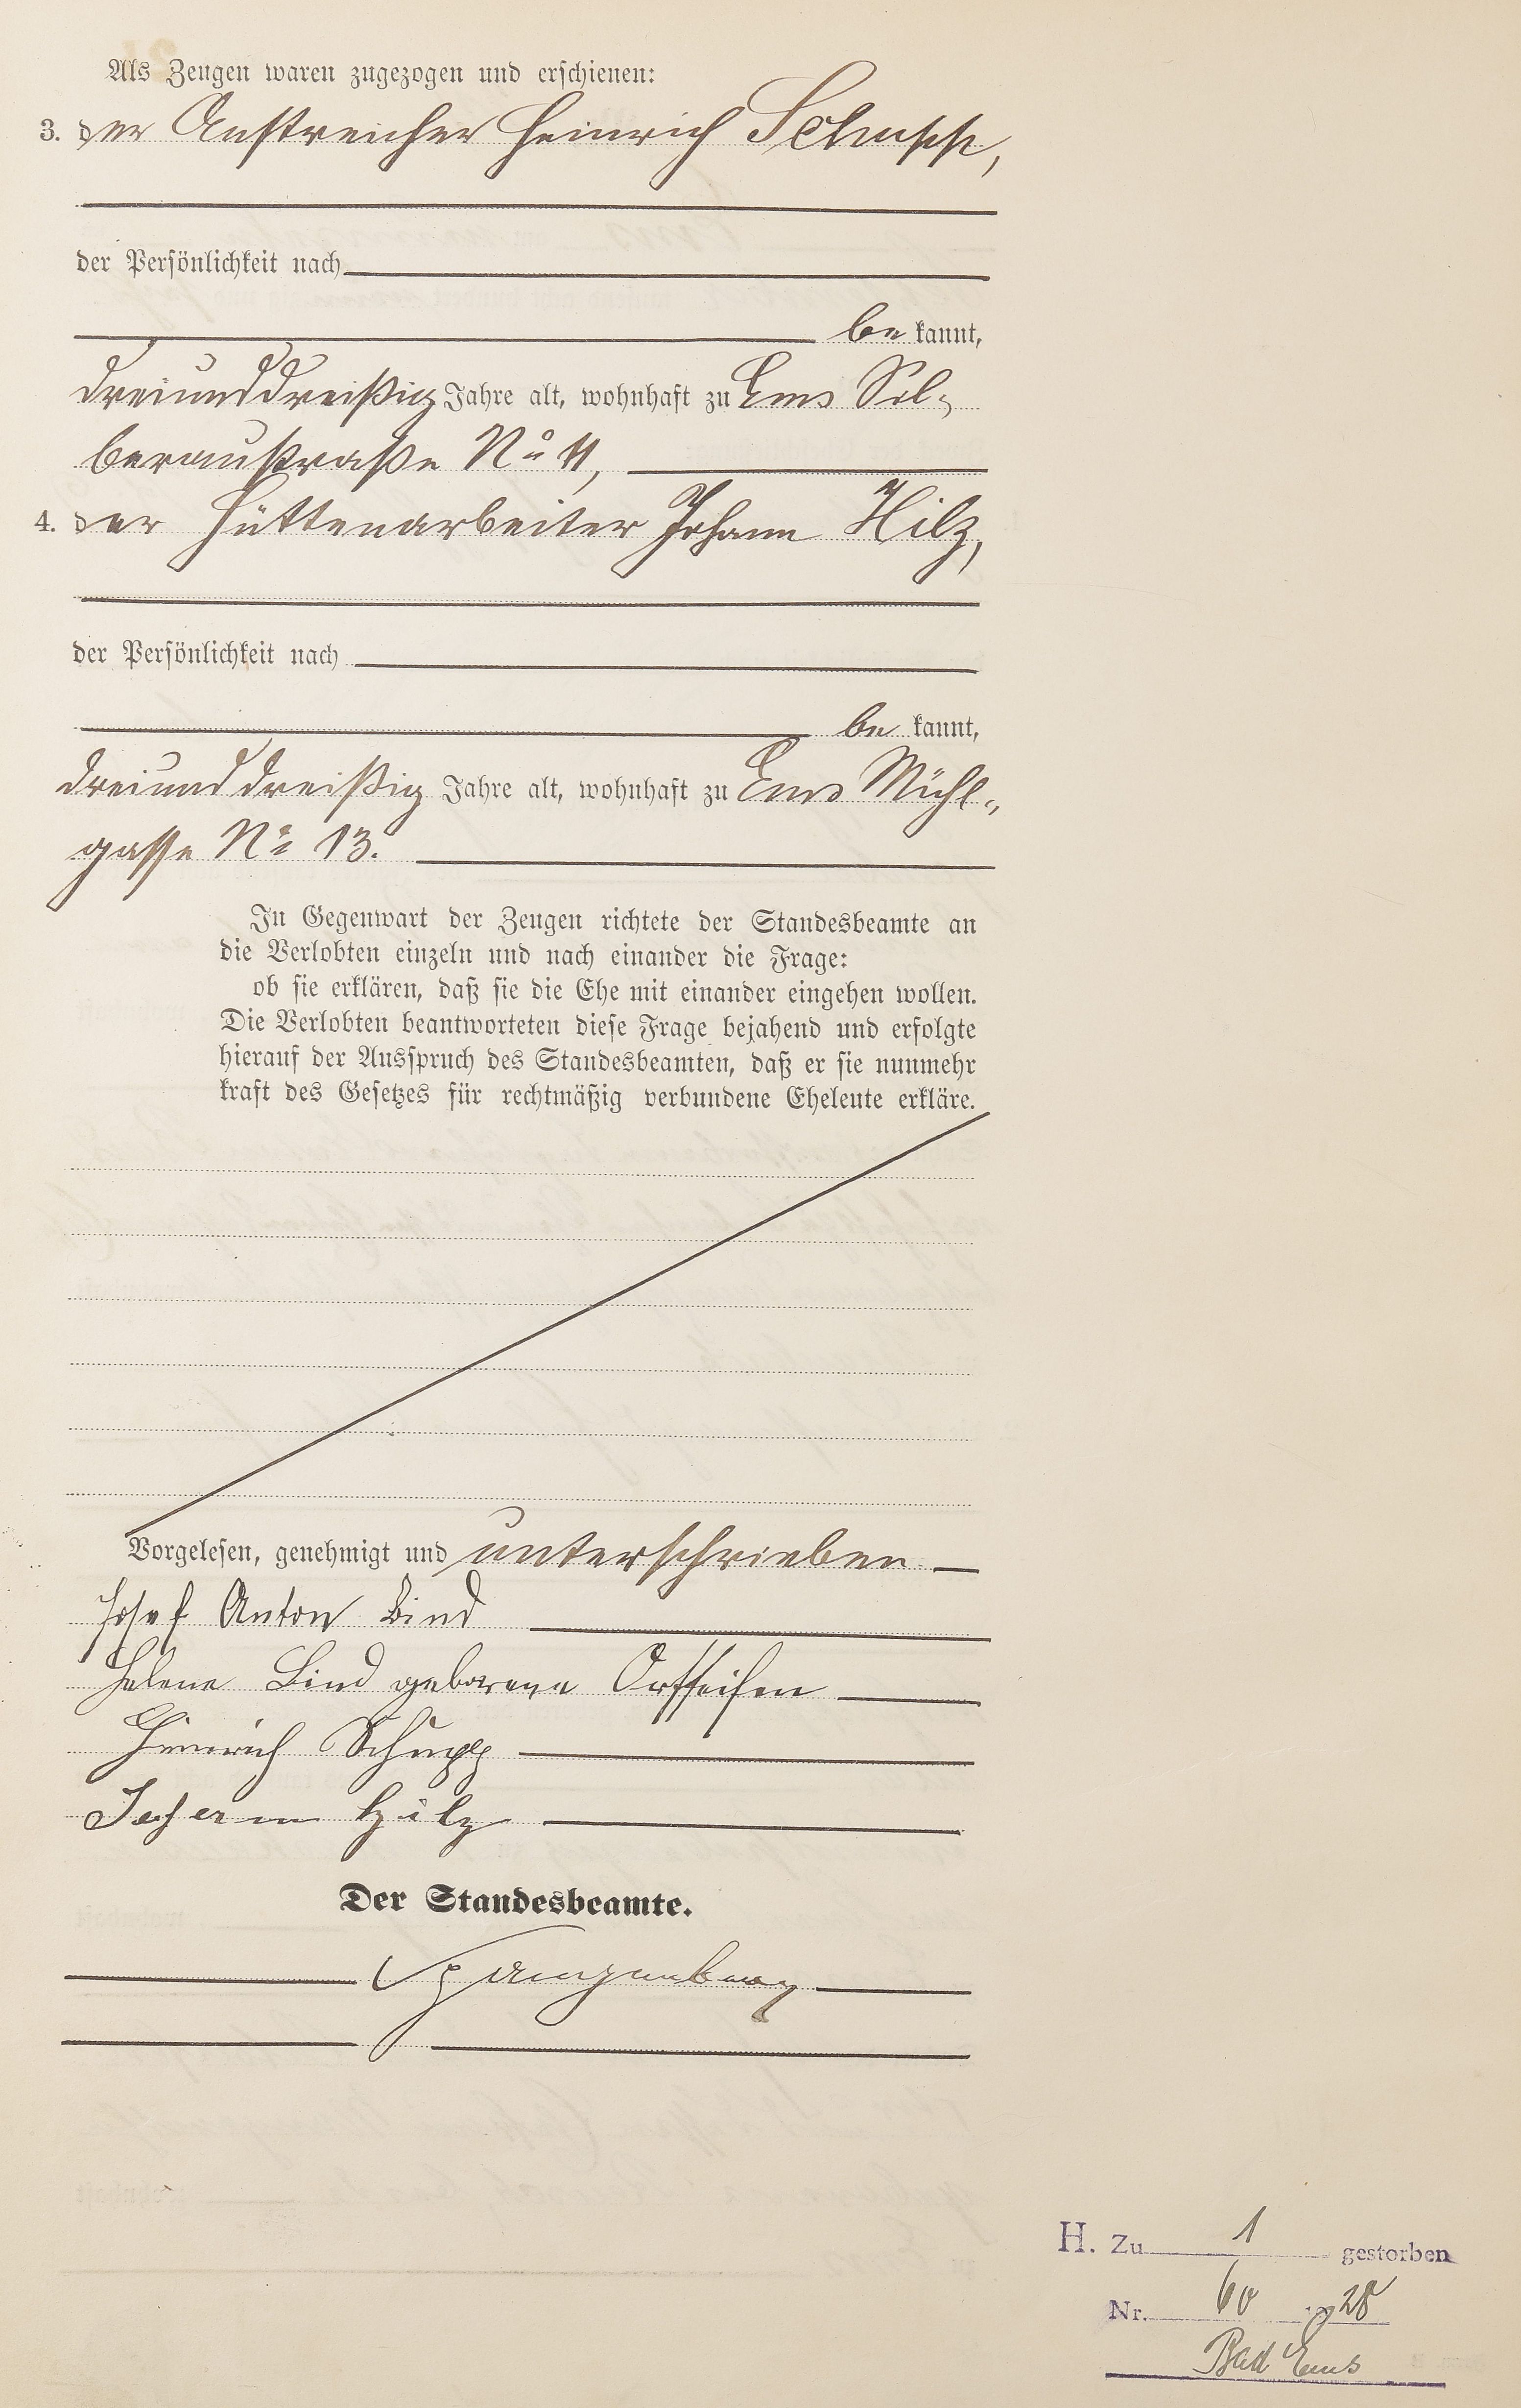 Als Zeugen waren zugezogen und erschienen:
3. der Anstreicher Heinrich Schupp,
der Persönlichkeit nach
be kannt,
dreiunddreißig Jahre alt, wohnhaft zu Ems Sil-
beraustraße No 11,
4. der Hüttenarbeiter Johann Hilz,
der Persönlichkeit nach
be kannt,
dreiunddreißig Jahre alt, wohnhaft zu Ems Mühl-
gasse No 13.
In Gegenwart der Zeugen richtete der Standesbeamte an
die Verlobten einzeln und nach einander die Frage:
ob sie erklären, daß sie die Ehe mit einander eingehen wollen.
Die Verlobten beantworteten diese Frage bejahend und erfolgte
hierauf der Ausspruch des Standesbeamten, daß er sie nunmehr
kraft des Gesetzes für rechtmäßig verbundene Eheleute erkläre.
Vorgelesen, genehmigt und unterschrieben
Josef Anton Bind
Helene Bind geborene Ortseifen
Heinrich Schupp
Johann Hilz
Der Standesbeamte.
Spangenberg
H. Zu 1 gestorben
Nr. 60 28
Bad Ems